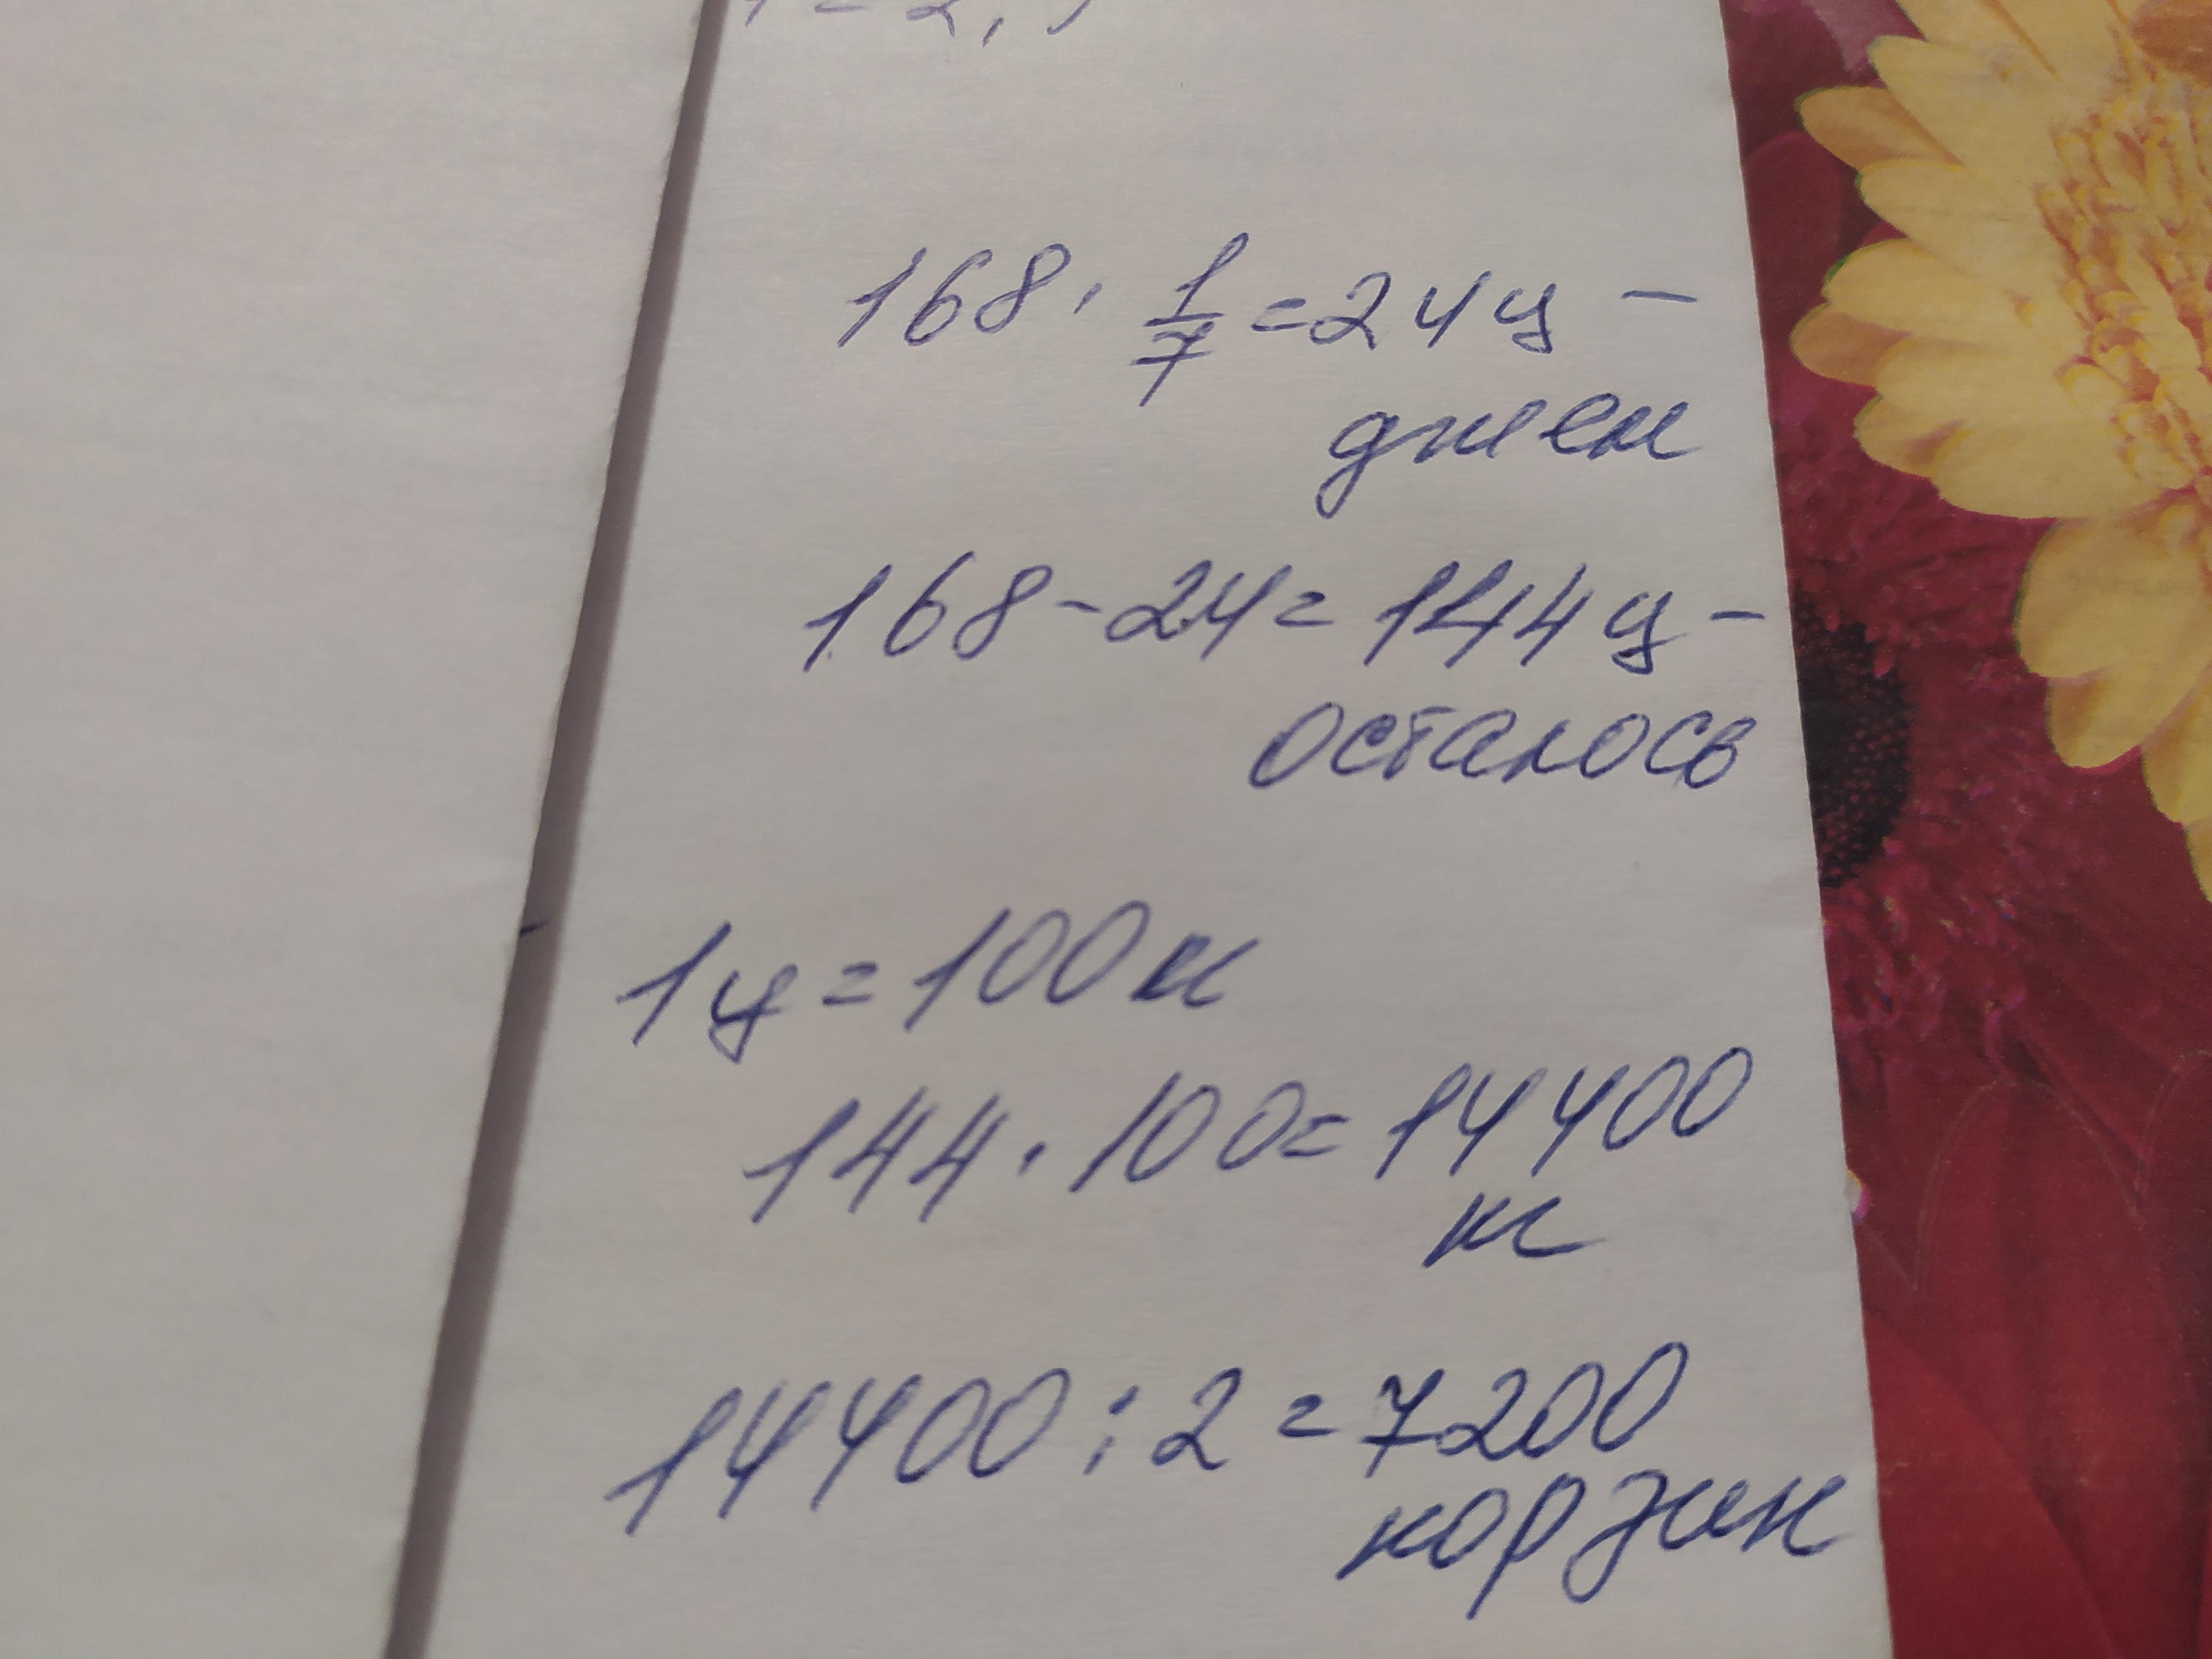 168 · 1/7 = 24 ц –
джем
168 - 24 = 144 ц –
осталось
1 ц = 100 к
144 · 100 = 14400
кг
14400 : 2 = 7200
корзин